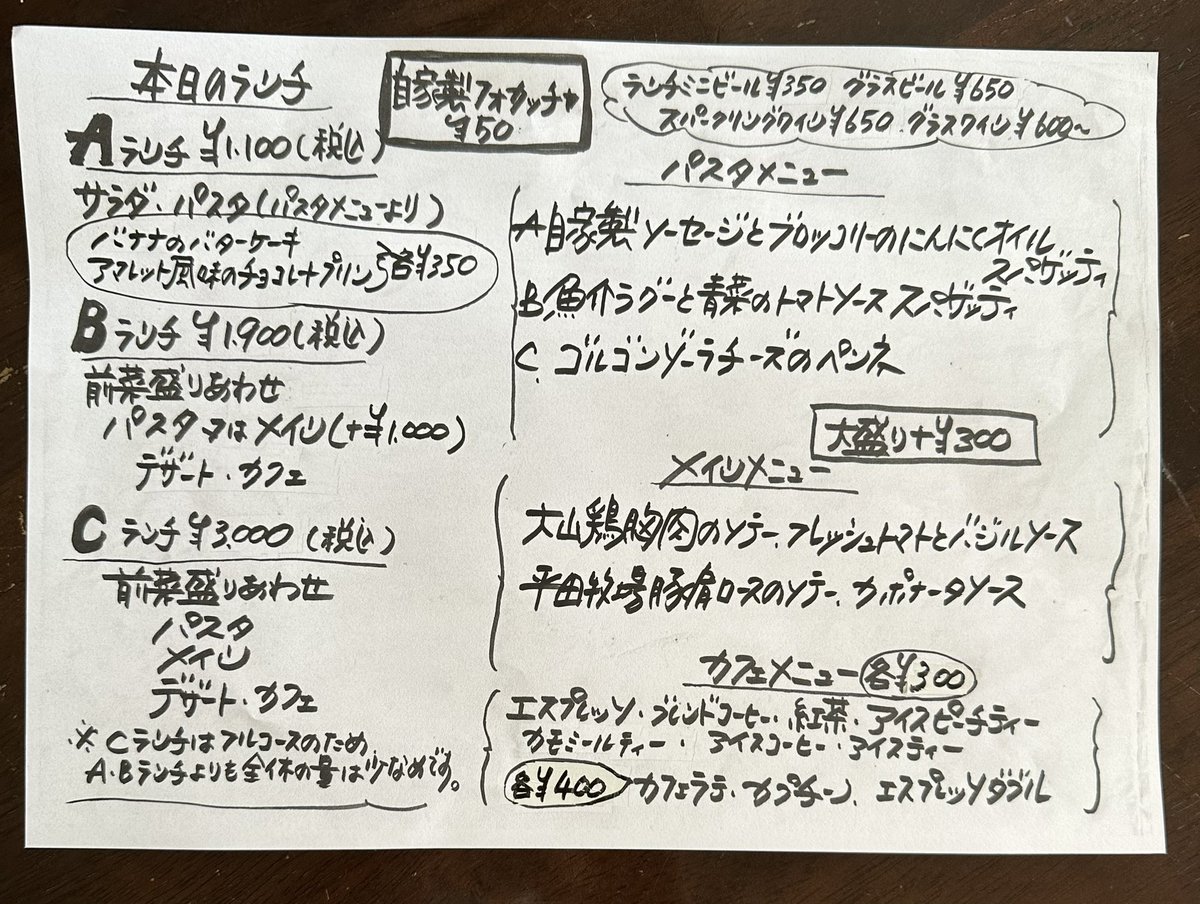 本日のランチ
Aランチ ¥1,100(税込)
サラダ・パスタ(パスタメニューより)
バナナのバターケーキ
アマレット風味のチョコレートプリン 各¥350
Bランチ ¥1,900(税込)
前菜盛りあわせ
パスタ又はメイン(+¥1,000)
デザート・カフェ
Cランチ ¥3,000(税込)
前菜盛りあわせ
パスタ
メイン
デザート・カフェ
※Cランチはフルコースのため
A・Bランチよりも全体の量は少なめです。
自家製フォカッチャ
¥50
ランチミニビール¥350 グラスビール¥650
スパークリングワイン¥650 グラスワイン¥600~
パスタメニュー
A自家製ソーセージとブロッコリーのにんにくオイル
スパゲッティ
B,魚介ラグーと青菜のトマトソース スパゲッティ
C、ゴルゴンゾーラチーズのペンネ
大盛り+¥300
メインメニュー
大山鶏胸肉のソテー、フレッシュトマトとバジルソース
平田牧場豚肩ロースのソテー、カポナータソース
カフェメニュー 各¥300
エスプレッソ・ブレンドコーヒー・紅茶・アイスピーチティー
カモミールティー・アイスコーヒー・アイスティー
各¥400 カフェラテ・カプチーノ、エスプレッソダブル